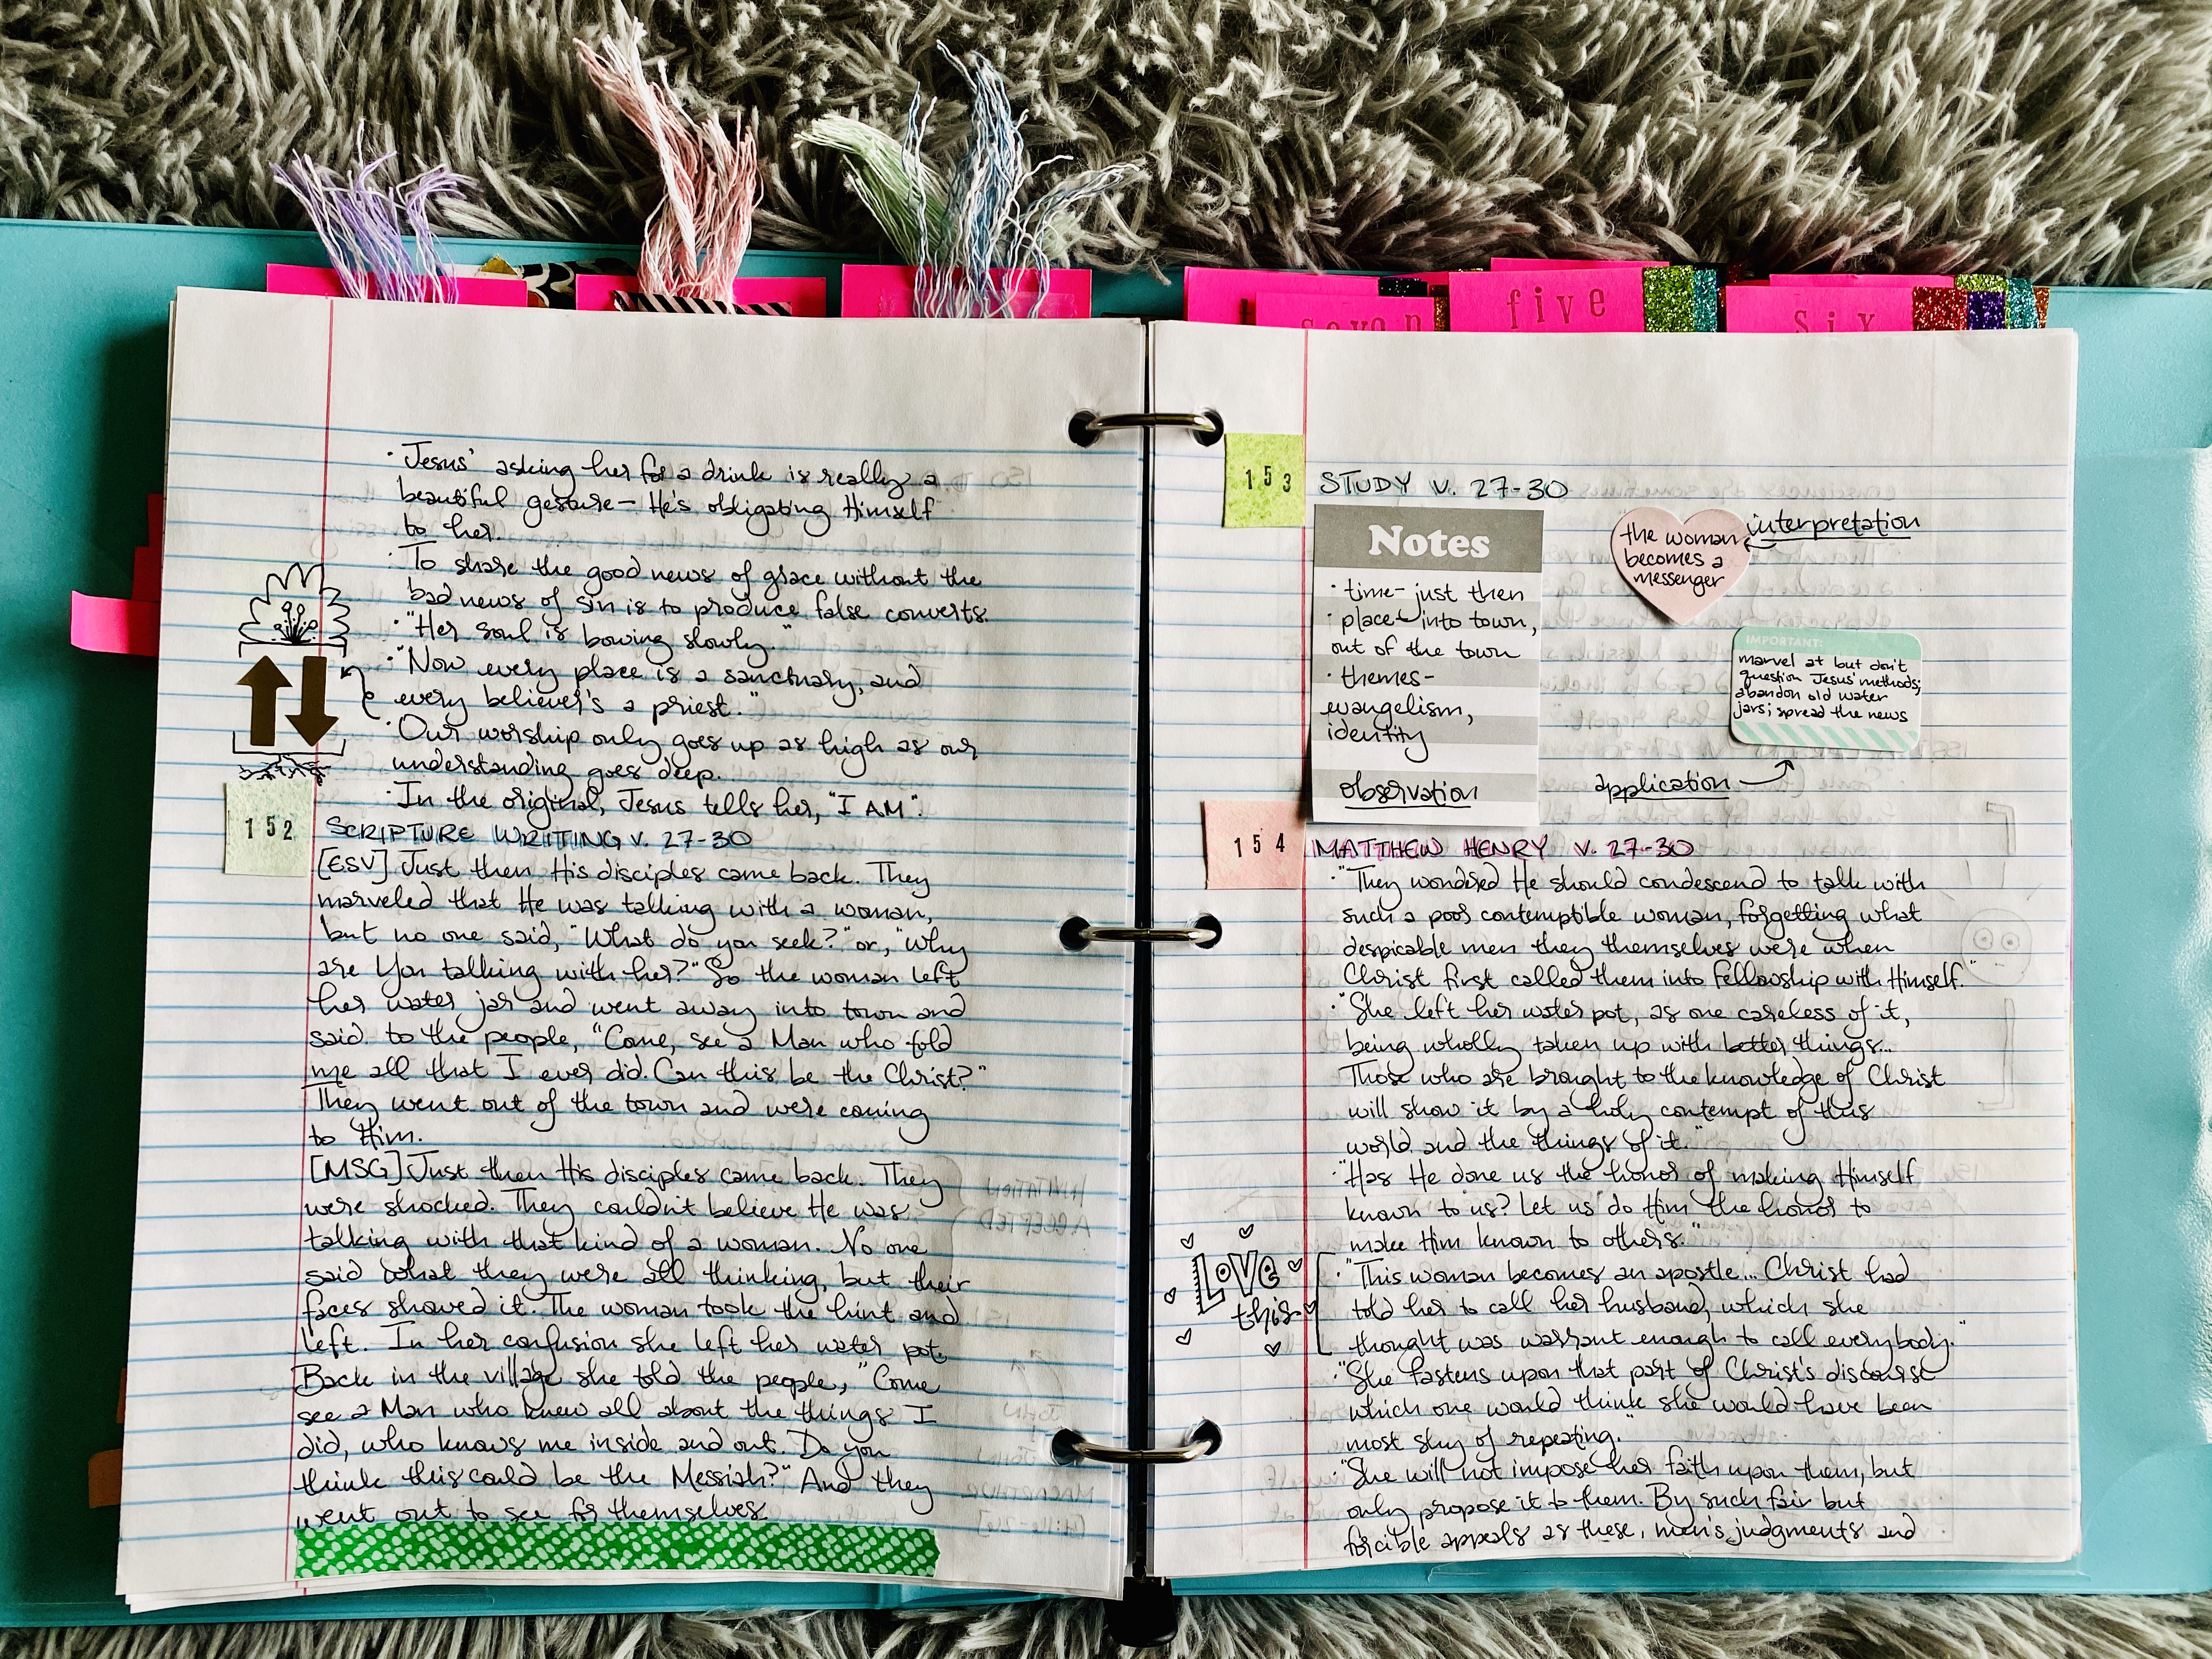 seven
five
six
· Jesus' asking her for a drink is really a
beautiful gesture— He's obligating Himself
to her.
· To share the good news of grace without the
bad news of sin is to produce false converts.
· "Her soul is bowing slowly."
· "Now every place is a sanctuary, and
every believer's a priest."
· Our worship only goes up as high as our
understanding goes deep.
· In the original, Jesus tells her, "I AM".
152
SCRIPTURE WRITING v. 27-30
[ESV] Just then His disciples came back. They
marveled that He was talking with a woman,
but no one said, "What do you seek?" or, "Why
are You talking with her?" So the woman left
her water jar and went away into town and
said to the people, "Come, see a Man who told
me all that I ever did. Can this be the Christ?"
They went out of the town and were coming
to Him.
[MSG] Just then His disciples came back. They
were shocked. They couldn't believe He was
talking with that kind of a woman. No one
said what they were all thinking, but their
faces showed it. The woman took the hint and
left. In her confusion she left her water pot.
Back in the village she told the people, "Come
see a Man who knew all about the things I
did, who knows me inside and out. Do you
think this could be the Messiah?" And they
went out to see for themselves.
153
STUDY v. 27-30
Notes
· time- just then
· place- into town,
out of the town
· themes-
evangelism,
identity
observation
the woman
becomes a
messenger
interpretation
IMPORTANT:
marvel at but don't
question Jesus' methods;
abandon old water
jars; spread the news
application
154
MATTHEW HENRY v. 27-30
· "They wondered He should condescend to talk with
such a poor contemptible woman, forgetting what
despicable men they themselves were when
Christ first called them into fellowship with Himself."
· "She left her water pot, as one careless of it,
being wholly taken up with better things...
Those who are brought to the knowledge of Christ
will show it by a holy contempt of this
world and the things of it."
· "Has He done us the honor of making Himself
known to us? Let us do Him the honor to
make Him known to others."
LOVE
this
· "This woman becomes an apostle... Christ had
told her to call her husband, which she
thought was warrant enough to call everybody."
· "She fastens upon that part of Christ's discourse
which one would think she would have been
most shy of repeating."
· "She will not impose her faith upon them, but
only propose it to them. By such fair but
forcible appeals as these, men's judgments and